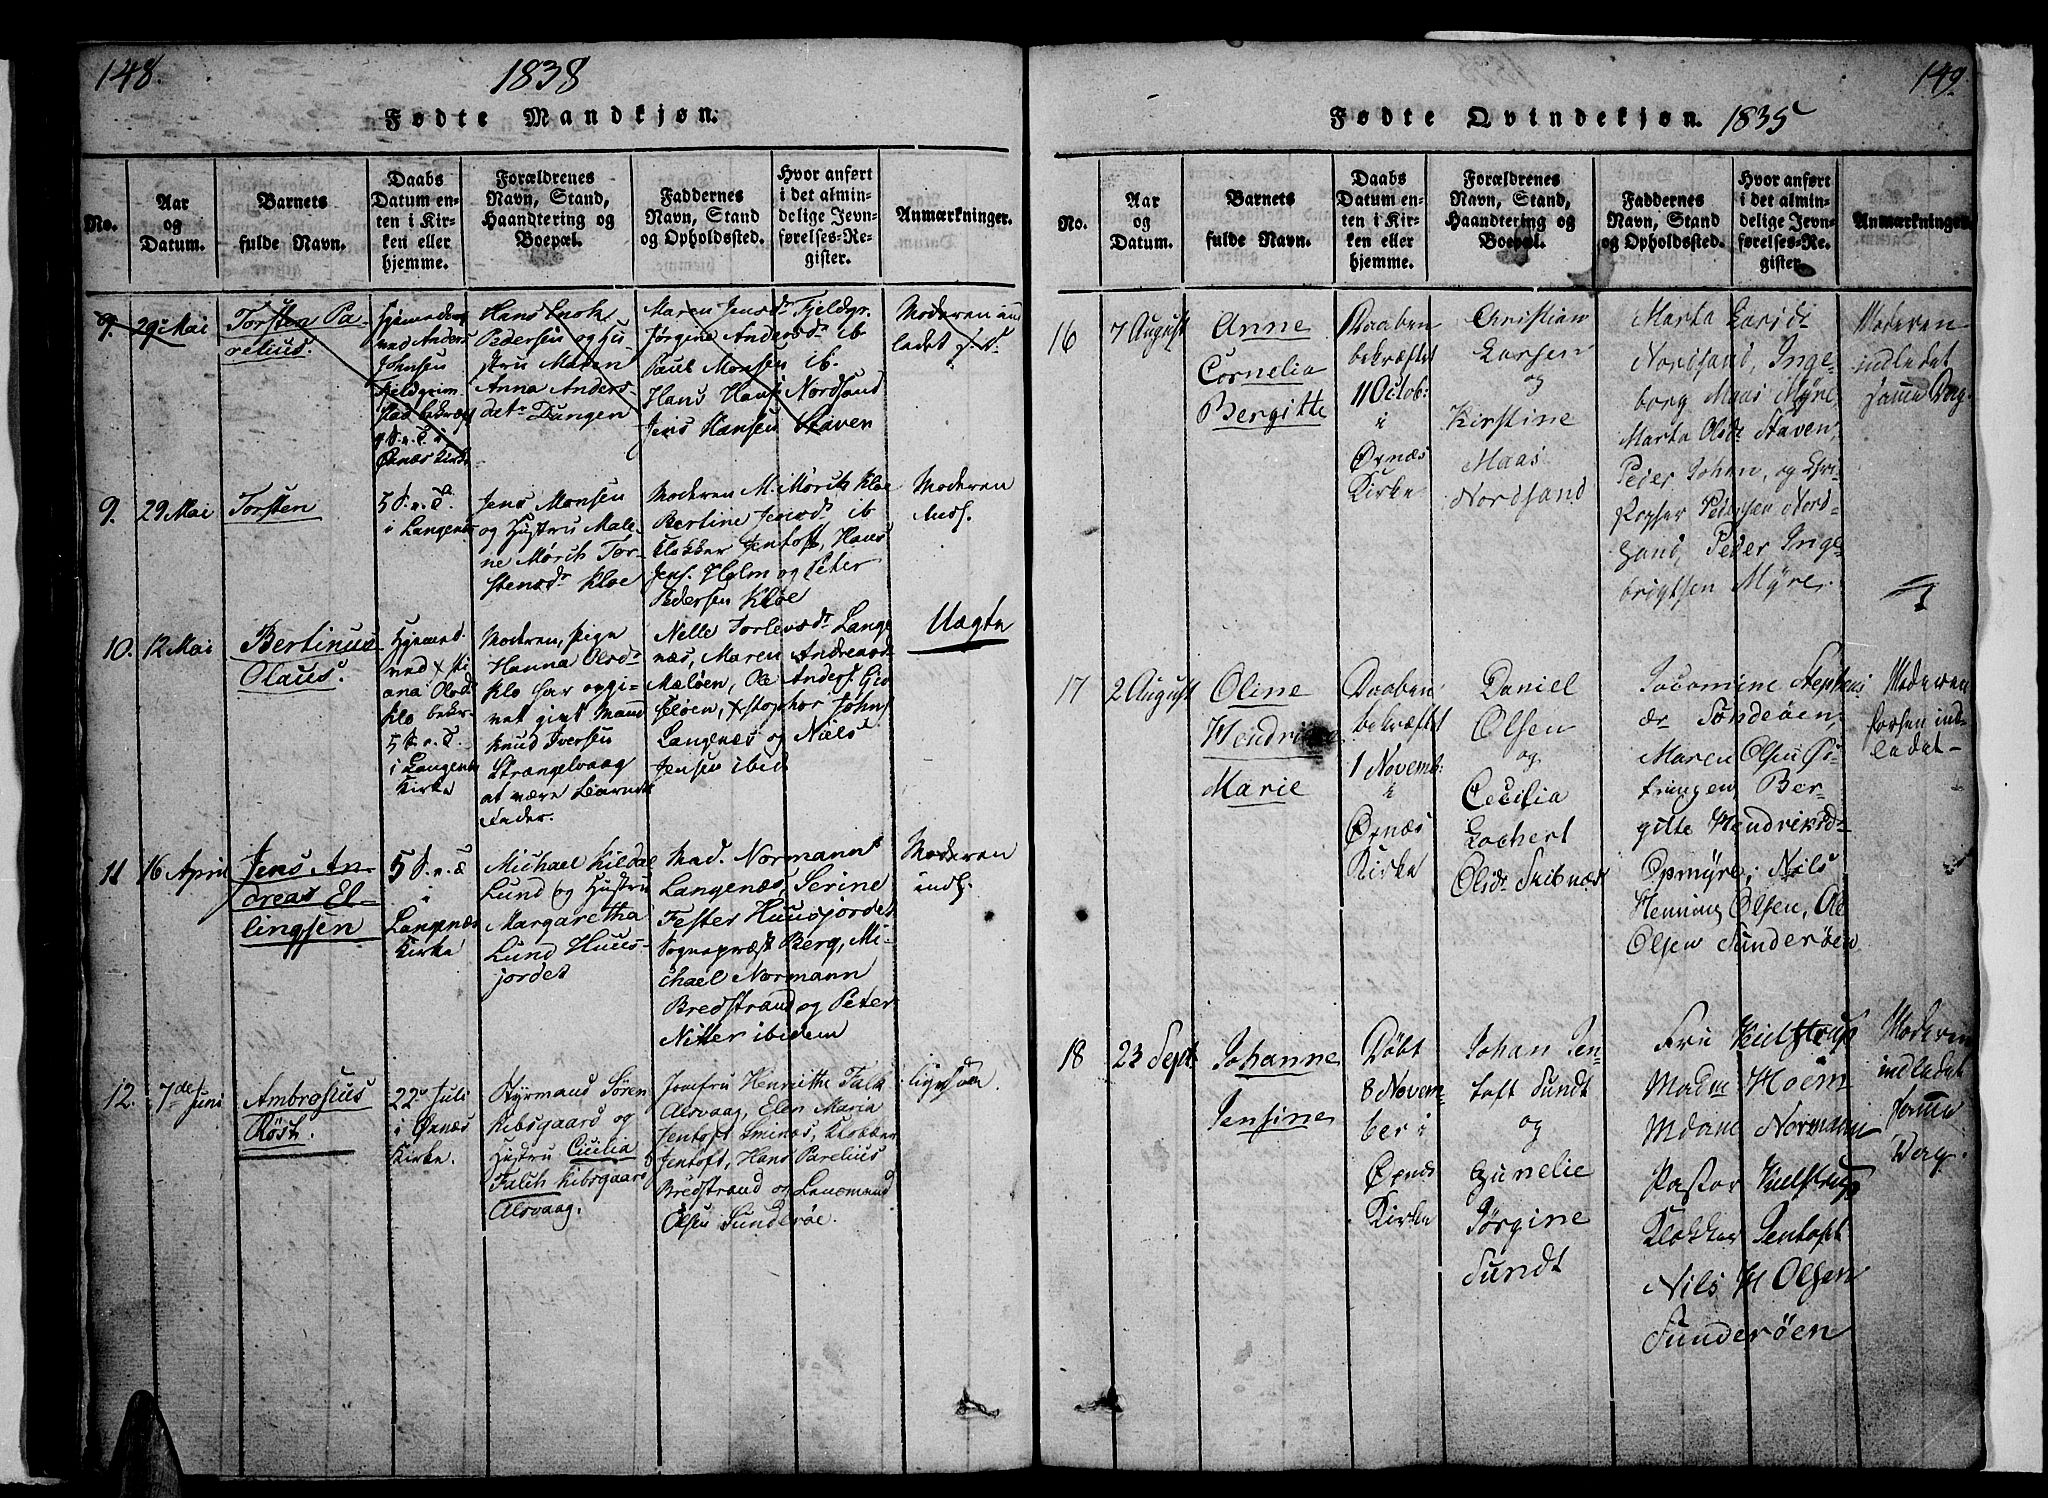 148.
1838
Fødte Mandkjøn.
No.
Aar
og
Datum.
Barnets
fulde Navn.
Daabs
Datum en-
ten i Kir-
ken eller
hjemme.
Forældrenes
Navn, Stand,
Haandtering og
Boepæl.
Faddernes
Navn, Stand
og Opholdssted.
Hvor anført
i det almin-
delige Jevn-
førelses-Re-
gister.
Anmærkninger.
9.
29 Mai
Torsten Pa-
relius.
Hjemmedøbt
ved Anders
Johnsen
bekræft
Øxnæs Kirke
Hans Enok
Pedersen og Hu-
stru Maren
Anna Anders-
datr Tungen
Maren Jensdr Fjeldgr.
Jørgine Andersdr ib
Poul Monsen ib.
Hans Hans. Nordsand
Jens Hansen Staven
Moderen ind
ledet s. D.
9.
29 Mai
Torsten
i Langenes
Jens Monsen
og Hustru Male-
ne Mørch Tor-
stensdr Kloe
Moderen M. Mørch Kloe
Bertine Jensdr ib
Klokker Jentoft, Hans
Jens. Holm og Peter
Pedersen Kloe
Moderen
indl.
10.
12 Mai
Bertinus
Olaus.
Hjemmed.
ved
ana Olsd.
Klo bekr.
i Langenes
Kirke
Moderen, Pige
Hanna Olsdr
Klo har opgi-
vet gift Mand
Knud Iversen
Strængelvaag
at være Barnets
Fader.
Nelle Torlevsdr Lange
næs, Maren Andreasd.
Meløen, Ole Anders. Gis
seløen, Xstophor Johns.
Langenæs og Niels
Jensen ibid
Uægte
11
16 April
Jens An-
dreas El-
lingsen
i
Langenæs
Kirke
Michael Kildal
Lund og Hustru
Margaretha
Lund Huus-
jordet
Mad. Normann
Langenæs, Serine
Fester Huusjordet
Sognepræst Berg, Mi-
chael Normann
Bredstrand og Peter
Nitter ibidem
Moderen
indl.
12.
7de Juni
Ambrosius
Røst.
22 Juli
i Øxnæs
Kirke.
Styrmand Søren
Kibsgaard og
Hustru Cicilia
Falch Kibsgaard
Alsvaag.
Jomfru Henritthe Falch
Alsvaag, Elen Maria
Jentoft Sminæs, Klokker
Jentoft, Hans Parelius
Bredstrand og Lensmand
Olsen Sunderøe.
ligesaa.
149.
Fødte Qvindekjøn. 1835
No.
Aar
og
Datum.
Barnets
fulde Navn.
Daabs
Datum en-
ten i Kir-
ken eller
hjemme.
Forældrenes
Navn, Stand,
Haandtering og
Boepæl.
Faddernes
Navn, Stand
og Opholdssted.
Hvor anført
i det almin-
delige Jevn-
førelses-Re-
gister.
Anmærkninger.
16
7 August
Anne
Cornelia
Bergitte
Daaben
bekræftet
11 Octob:
i
Øxnæs
Kirke
Christian
Larsen
og
Kirstine
Maas
Nordsand
Marta Larsdr
Nordsand, Inge-
borg Maas Myre
Marta Olsdr Staven,
Peder Johan, og
Pedersen Nord-
sand, Peder Inge-
brigtsen Myre.
Moderen
indledet
samme Dag.
17
2 August
Oline
Hendrikke
Marie
Daaben
bekræftet
1 Novemb:
i
Øxnæs
Kirke
Daniel
Olsen
og
Cecilia
Lochert
Olsdr Skibnæs
Jacomine Stephens
dr Sunderøen
Maren Olsen
tungen, Ber-
gitte Hendriksdr
Opmyre, Nils
Henning Olsen, Ole
Olsen Sunderøen
Moderen
forhen ind-
ledet
18
23 Sept.
Johanne
Jensine
Døbt
8 Novem-
ber i
Øxnæs
Kirke
Johan Jen-
toft Sundt
og
Gunelie
Jørgine
Sundt
Fru Kielstrup
Madm Hoem
Mdame Normann
Pastor Kielstrup
Klokker Jentoft
Nils H Olsen
Sunderøen
Moderen
indledet
samme
Dag.